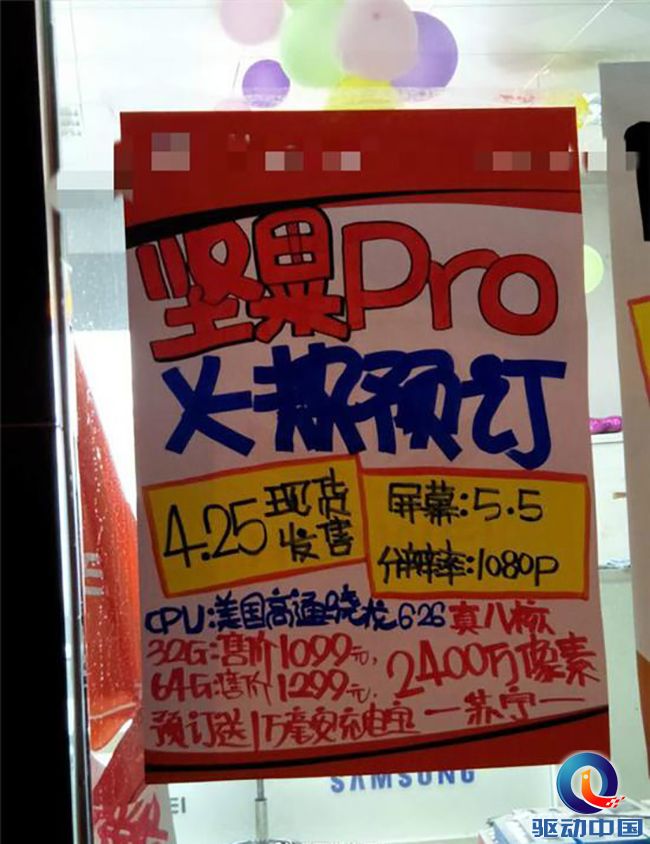 坚果Pro
火热预订
4.25现货
发售
屏幕:5.5
分辨率:1080P
CPU:美国高通骁龙626真八核
32G:售价1099元,
64G:售价1299元.
2400万像素
预订送1万毫安充电宝 一苏宁一
SAMSUNG
EI
驱动中国